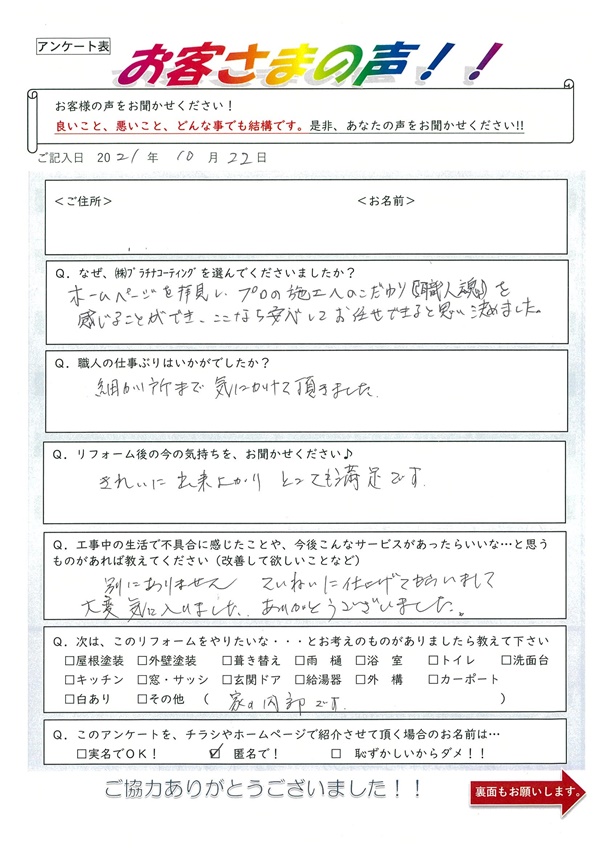 アンケート表
お客さまの声！！
お客様の声をお聞かせください！
良いこと、悪いこと、どんな事でも結構です。是非、あなたの声をお聞かせください!!
ご記入日 2021年 10月22日
＜ご住所＞ ＜お名前＞
Q．なぜ、㈱プラチナコーティングを選んでくださいましたか？
ホームページを拝見し、プロの施工人のこだわり『職人魂』を
感じることができ、ここなら安心してお任せできると思い決めました。
Q．職人の仕事ぶりはいかがでしたか？
細かい所まで気にかけて頂きました。
Q．リフォーム後の今の気持ちを、お聞かせください♪
きれいに出来上がり とっても満足です。
Q．工事中の生活で不具合に感じたことや、今後こんなサービスがあったらいいな…と思う
ものがあれば教えてください（改善して欲しいことなど）
別にありません ていねいに仕上げてもらいまして
大変気に入りました。ありがとうございました。
Q．次は、このリフォームをやりたいな・・・とお考えのものがありましたら教えて下さい
□屋根塗装 □外壁塗装 □葺き替え □雨 樋 □浴 室 □トイレ □洗面台
□キッチン □窓・サッシ □玄関ドア □給湯器 □外 構 □カーポート
□白あり □その他 （ 家の内部です。 ）
Q．このアンケートを、チラシやホームページで紹介させて頂く場合のお名前は…
□実名でOK！ ☑ 匿名で！ □ 恥ずかしいからダメ！！
ご協力ありがとうございました！！
裏面もお願いします。